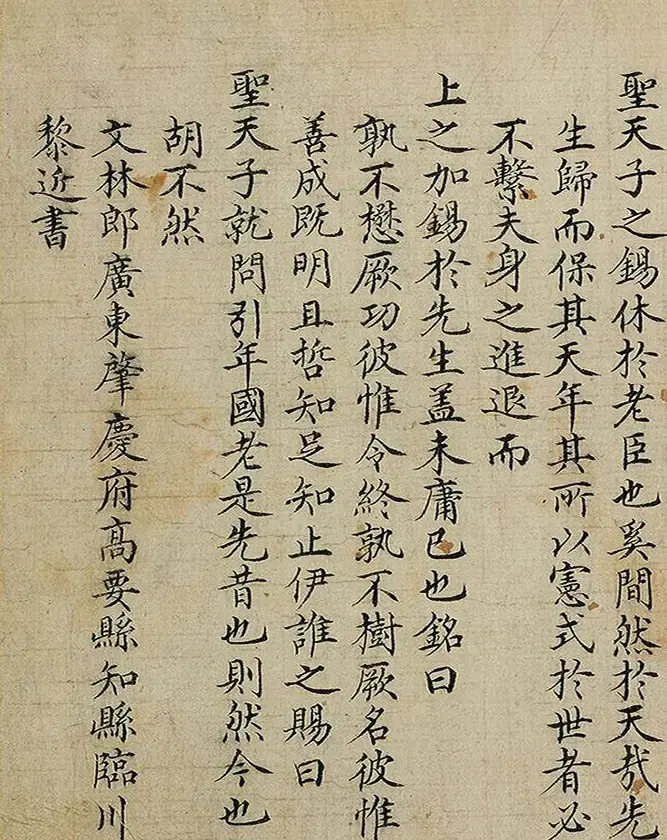 聖天子之錫休於老臣也奚間然於天哉先
生歸而保其天年其所以憲式於世者必
不繫夫身之進退而
上之加錫於先生蓋未庸已也銘曰
孰不懋厥功彼惟令終孰不樹厥名彼惟
善成既明且哲知足知止伊誰之賜曰
聖天子就問引年國老是先昔也則然今也
胡不然
文林郎廣東肇慶府高要縣知縣臨川
黎近書